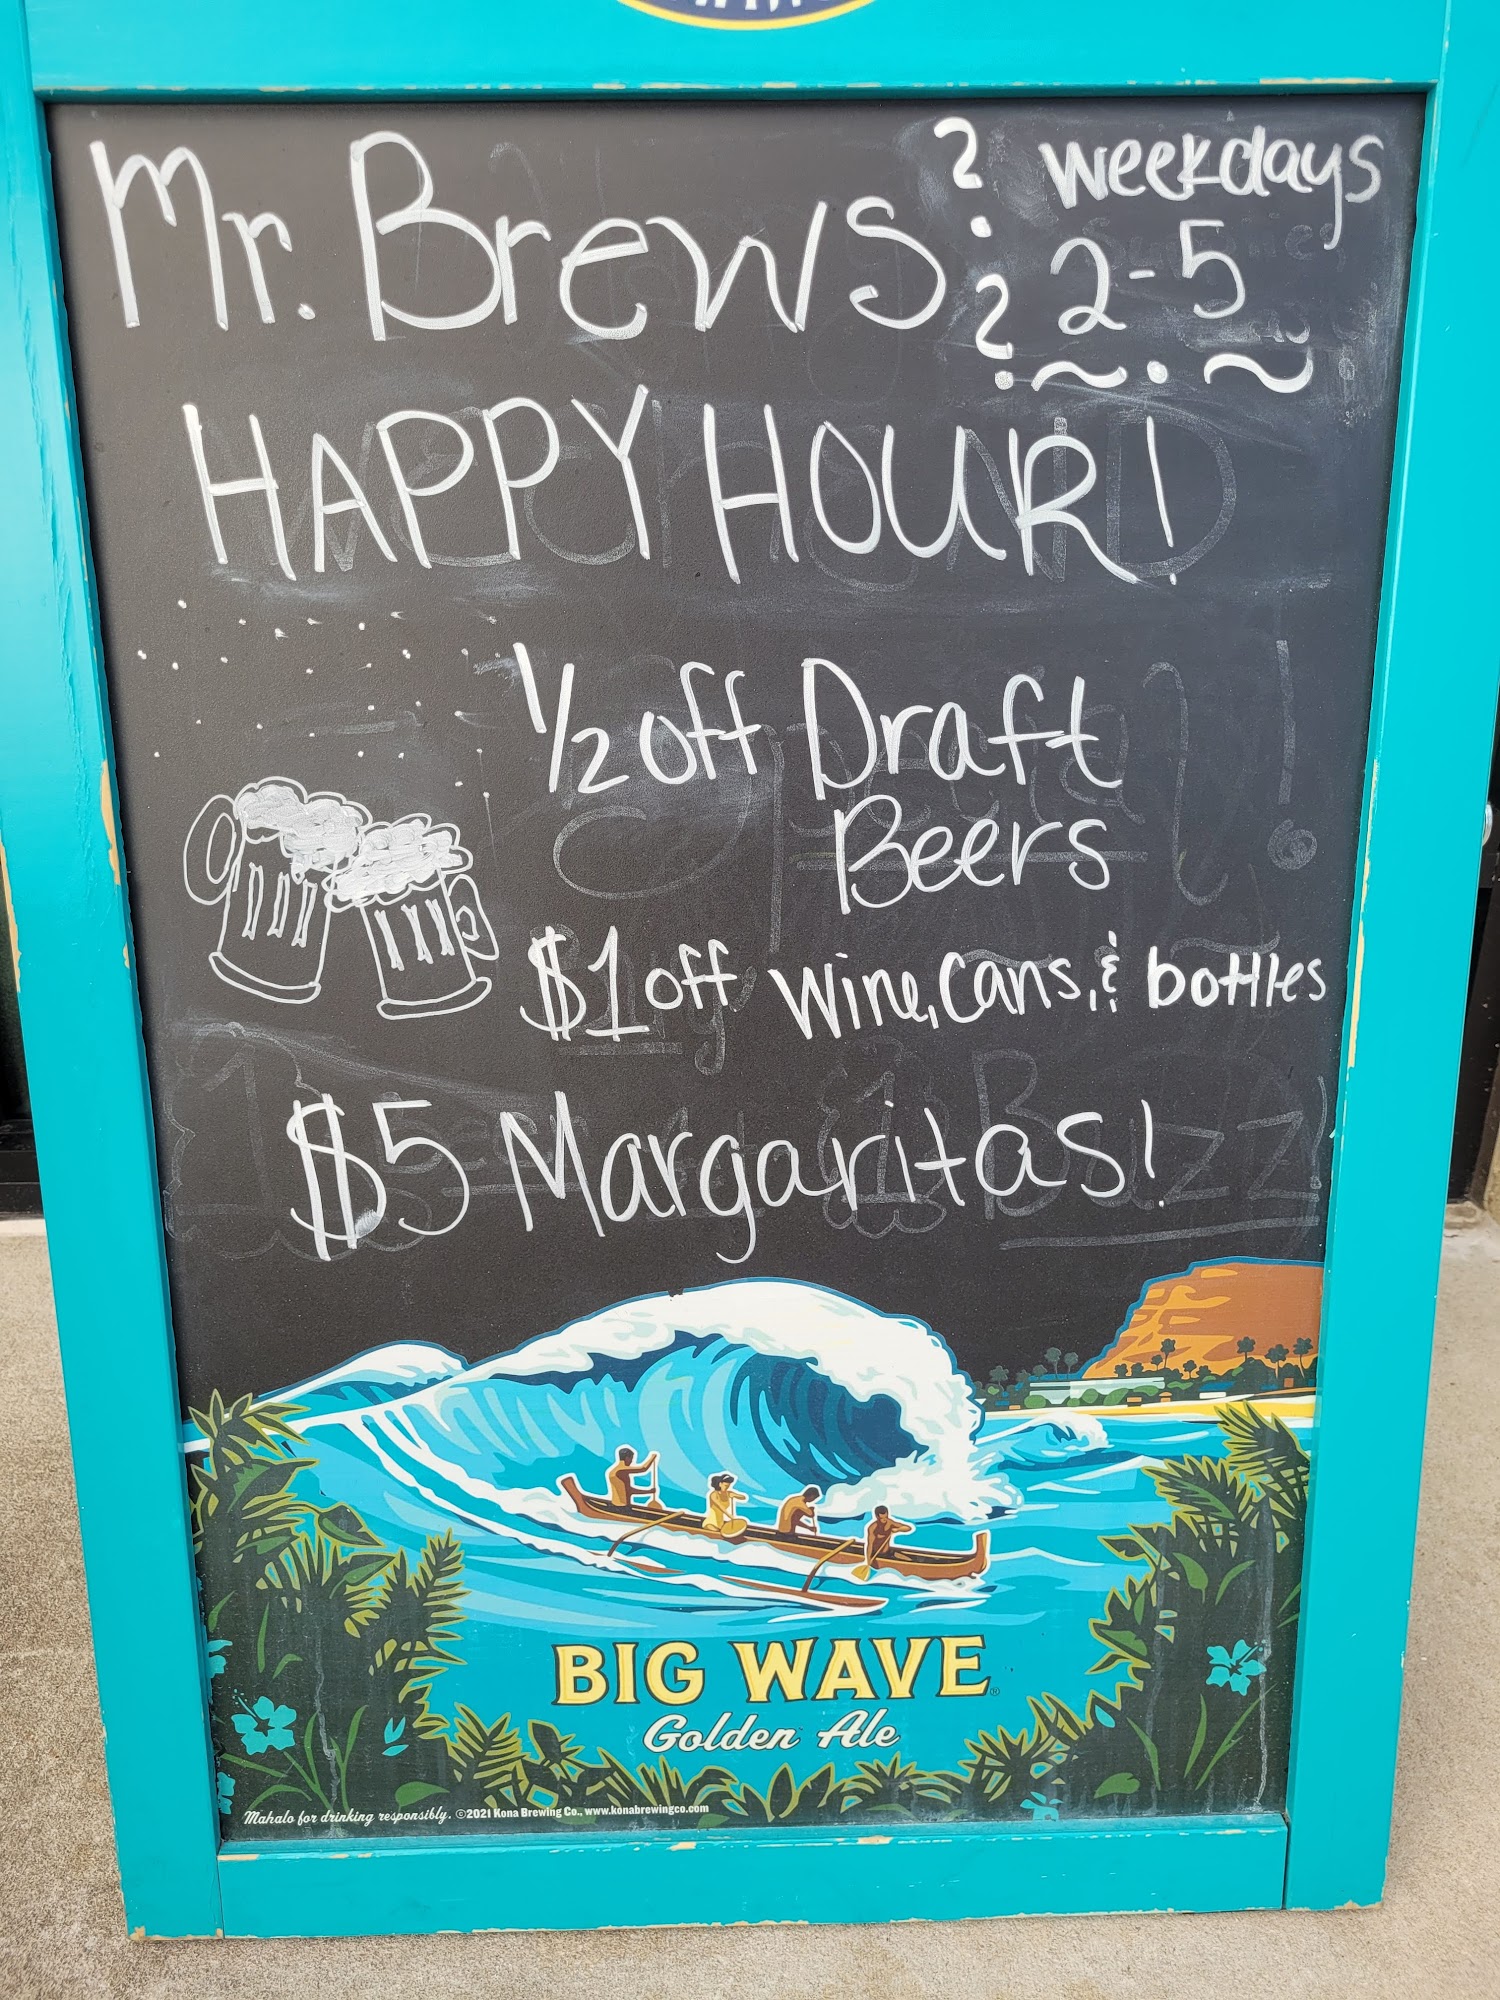 Mr. Brews
weekdays
2-5
HAPPY HOUR!
1/2 off Draft
Beers
$1 off wine, cans, & bottles
$5 Margaritas!
BIG WAVE®
Golden Ale
Mahalo for drinking responsibly. ©2021 Kona Brewing Co., www.konabrewingco.com